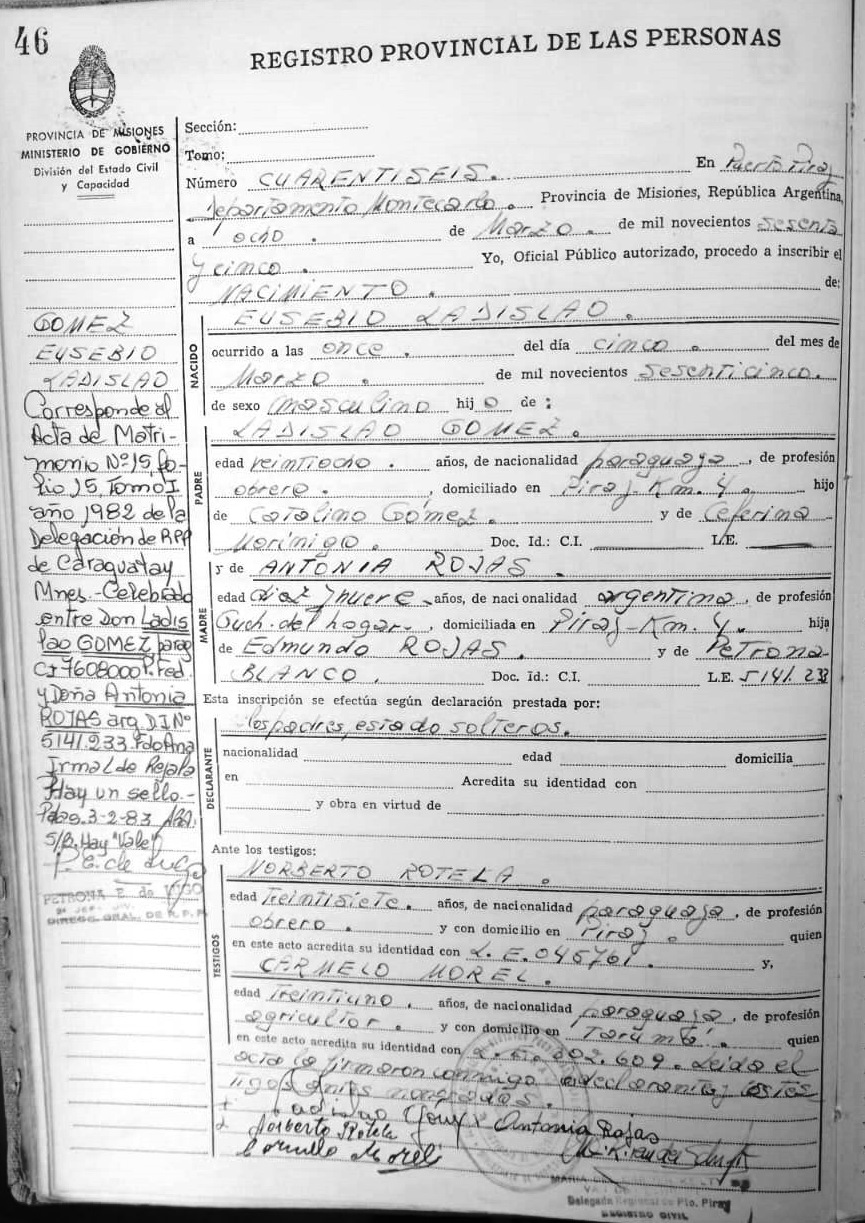 46
REGISTRO PROVINCIAL DE LAS PERSONAS
PROVINCIA DE MISIONES
MINISTERIO DE GOBIERNO
División del Estado Civil
y Capacidad
GOMEZ
EUSEBIO
LADISLAO
Corresponde al
Acta de Matri-
monio Nº 15 fo-
lio 15, Tomo I
año 1982 de la
Delegación de RPP
de Caraguatay
Mnes.- Celebrado
entre Don Ladis
lao GOMEZ parag
CI 7608000 P. Fed.
y Doña Antonia
ROJAS arg DI Nº
5141.233 Fdo Ana
Irma L de Rejala
Hay un sello.-
Pdas. 3-2-83
S/B. Hay "Vale"
PETRONA E. de LUGO
DIREC. GRAL. DE R. P. P.
Sección:
Tomo:
Número CUARENTISEIS. En Puerto Piray
Departamento Montecarlo. Provincia de Misiones, República Argentina,
a ocho. de Marzo. de mil novecientos sesenta
y cinco. Yo, Oficial Público autorizado, procedo a inscribir el
NACIMIENTO. de:
NACIDO
EUSEBIO LADISLAO.
ocurrido a las once. del día cinco. del mes de
Marzo. de mil novecientos sesenticinco.
de sexo masculino hij o de:
PADRE
LADISLAO GOMEZ.
edad veintiocho. años, de nacionalidad paraguaya, de profesión
obrero., domiciliado en Piray-Km. 4. hijo
de Catalino Gómez. y de Ceferina
Morinigo. Doc. Id.: C.I. L.E.
MADRE
y de ANTONIA ROJAS.
edad diez y nueve años, de nacionalidad argentina, de profesión
Quh. del hogar., domiciliada en Piray-Km. 4. hija
de Edmundo ROJAS. y de PETRONA
BLANCO. Doc. Id.: C.I. L.E. 5141.233
Esta inscripción se efectúa según declaración prestada por:
DECLARANTE
los padres, estado solteros.
nacionalidad edad domicilia
en Acredita su identidad con
y obra en virtud de
Ante los testigos:
TESTIGOS
NORBERTO ROTELA.
edad Treintisiete. años, de nacionalidad paraguaya, de profesión
obrero. y con domicilio en Piray. quien
en este acto acredita su identidad con L.E. 045761. y,
CARMELO MOREL.
edad Treintiuno. años, de nacionalidad paraguaya, de profesión
agricultor. y con domicilio en Tarumá. quien
en este acto acredita su identidad con 302.609. Leída el
acta la firmaron conmigo el declarante y los tes
tigos antes nombrados.
Ladislao Gomez Antonia Rojas
Norberto Rotela
Carmelo Morel
MARIA
Delegada Regional de Pto. Piray
REGISTRO CIVIL